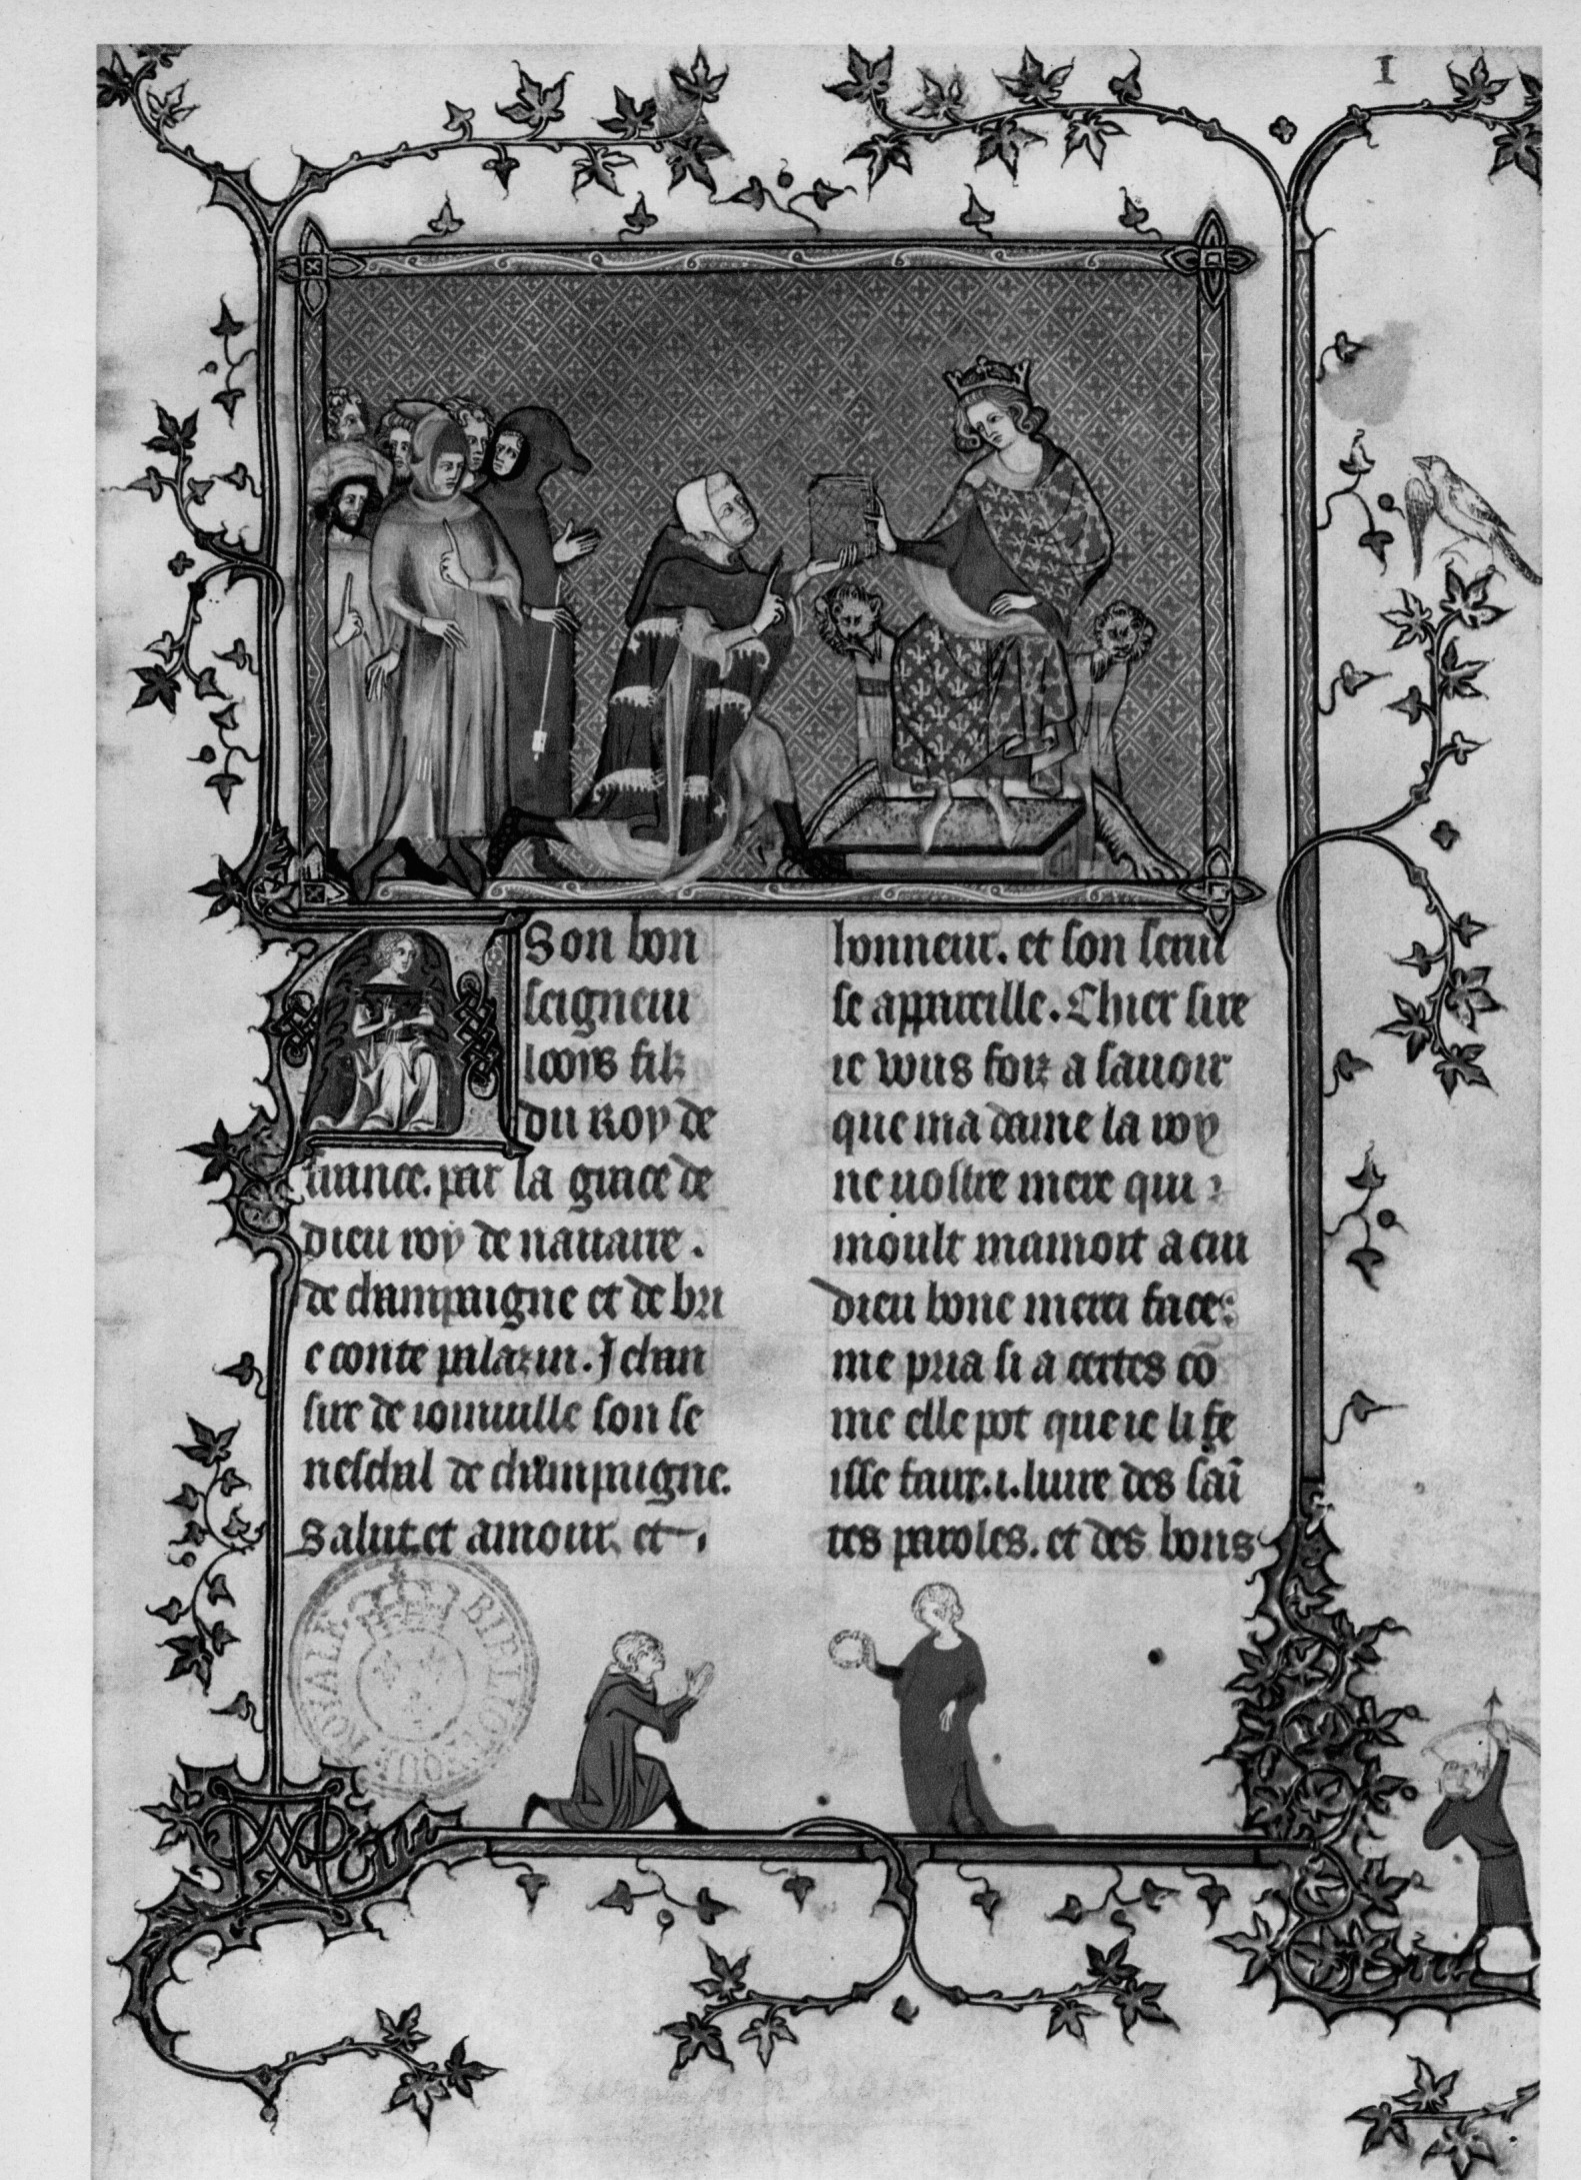 I
A Son bon
seigneur
looys filz
du Roy de
france. par la grace de
dieu roy de nauarre.
de champaigne et de bri
e conte palazin. Jehan
sire de ioinuille son se
neschal de champaigne.
Salut. et amour. et
honneur. et son seruise
se appareille. Chier sire
ie vous foiz a sauoir
que ma dame la roy
ne uostre mere qui
moult mamoit a cui
dieu bone merci face.
me pria si a certes cō
me elle pot que ie li fe
isse faire .i. liure des saī
tes paroles. et des bons
BIBLIOTHEQUE ROYALE